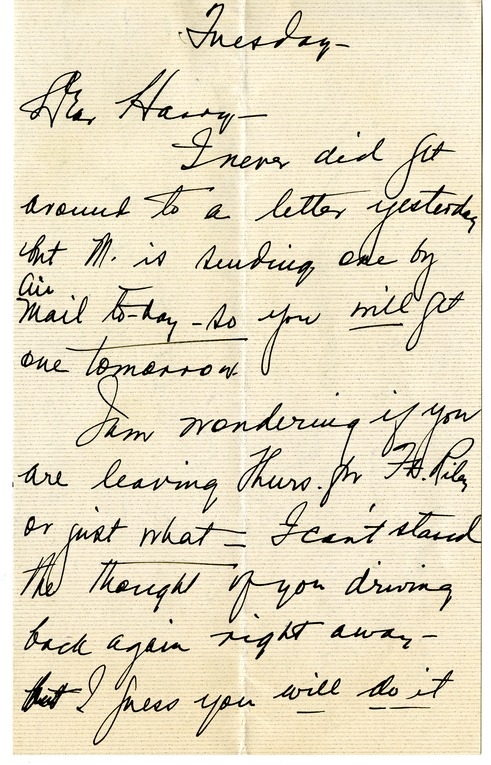 Tuesday-
Dear Harry-
I never did get
around to a letter yesterday
but M. is sending one by
air
Mail to-day - so you will get
one tomorrow
I am wondering if you
are leaving Thurs. for Ft. Riley
or just what - I can't stand
the thought of you driving
back again right away -
but I guess you will do it